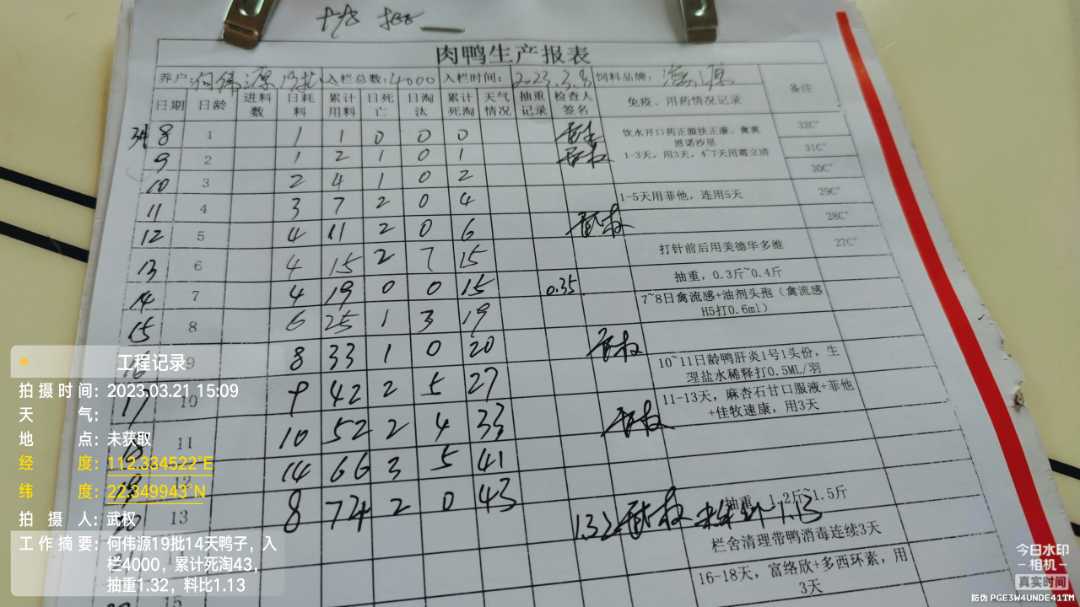 肉鸭生产报表
养户 何伟源 入栏总数：4000 入栏时间：2023.3.8 饲料品牌：
日期 日龄 进料数 日耗料 累计用料 日死亡 日淘汰 累计死淘 天气情况 抽重记录 检查人签名 免疫、用药情况记录 备注
8 1 1 1 0 0 0 32C°
9 2 1 2 1 0 1 1-3天，用3天，4~7天用霉立清 31C°
10 3 2 4 1 0 2 30C°
11 4 3 7 2 0 4 1-5天用菲他，连用5天 29C°
12 5 4 11 2 0 6 28C°
13 6 4 15 2 7 15 打针前后用美德华多维 27C°
14 7 4 19 0 0 15 0.35 抽重，0.3斤~0.4斤
15 8 6 25 1 3 19 7~8日禽流感+油剂头孢（禽流感
H5打0.6ml）
16 9 8 33 1 0 20
10~11日龄鸭肝炎1号1头份，生
理盐水稀释打0.5ML/羽
17 10 9 42 2 5 27
11-13天，麻杏石甘口服液+菲他
+佳牧速康，用3天
18 11 10 52 2 4 33
19 12 14 66 3 5 41
13 8 74 2 0 43 1.32 抽重，1.2斤~1.5斤
料比1.13
栏舍清理带鸭消毒连续3天
16-18天，富络欣+多西环素，用
3天
15
工程记录
拍摄时间：2023.03.21 15:09
天气：
地点：未获取
经度：112.334522°E
纬度：22.349943°N
拍摄人：武权
工作摘要：何伟源19批14天鸭子，入
栏4000，累计死淘43，
抽重1.32，料比1.13
今日水印
-相机-
真实时间
防伪 PGE3W4UNDE41TM